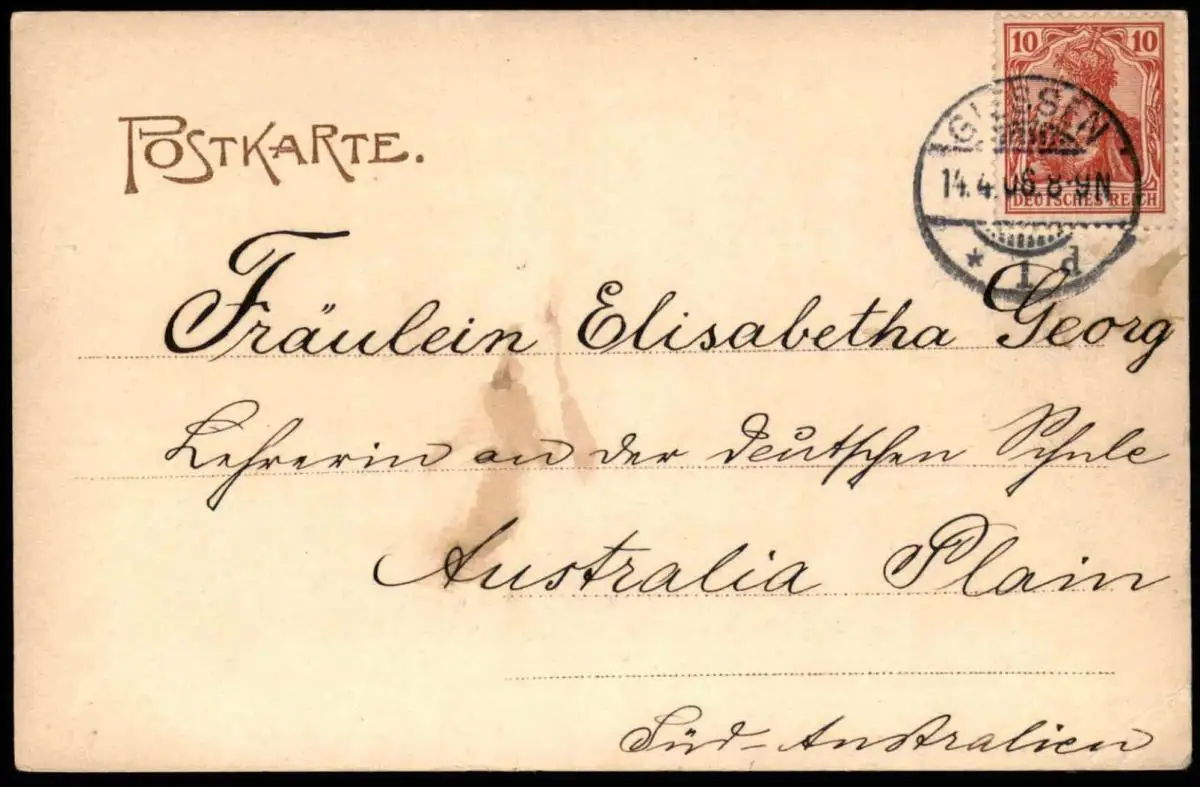 10 10
DEUTSCHES REICH
GIESSEN
14.4.06.8-9N
* 1 d
POSTKARTE.
Fräulein Elisabetha Georg
Lehrerin an der deutschen Schule
Australia Plain
Süd-Australien